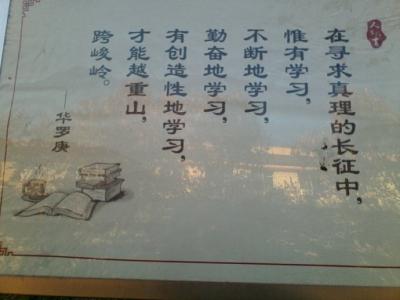 在寻求真理的长征中，
惟有学习，
不断地学习，
勤奋地学习，
有创造性地学习，
才能越重山，
跨峻岭。
——华罗庚